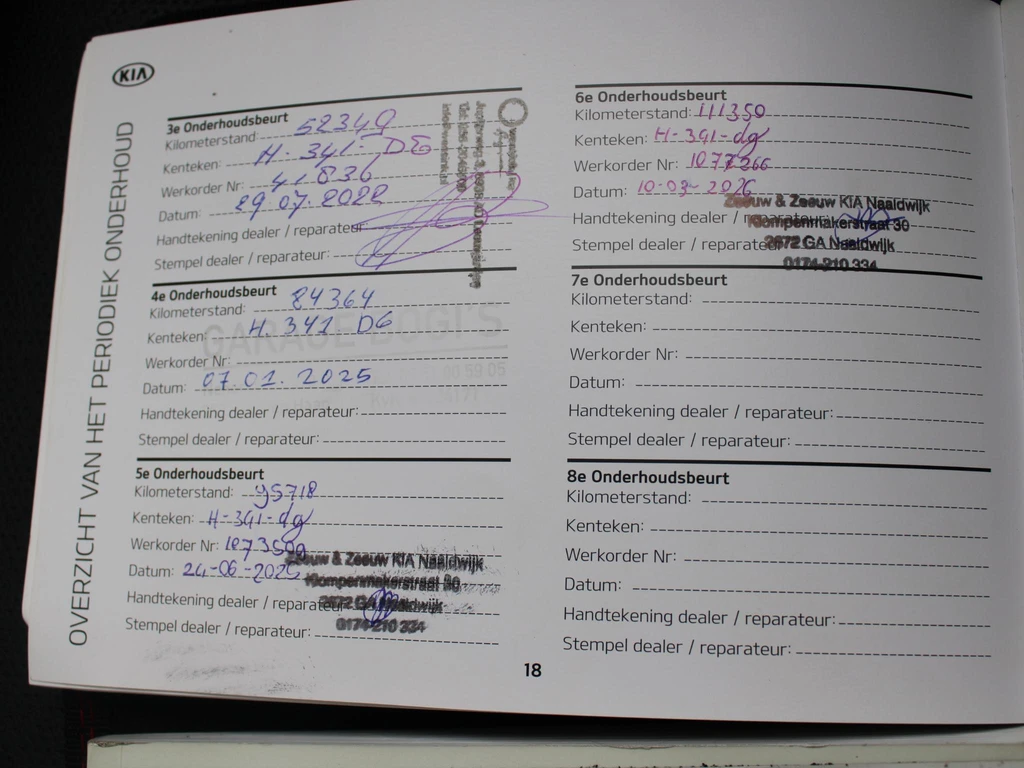 KIA
OVERZICHT VAN HET PERIODIEK ONDERHOUD
3e Onderhoudsbeurt
Kilometerstand: 52349
Kenteken: H-341-DG
Werkorder Nr: 41836
Datum: 29.07.2022
Handtekening dealer / reparateur
Stempel dealer / reparateur:
4e Onderhoudsbeurt
Kilometerstand: 84364
Kenteken: H.341 DG
Werkorder Nr:
Datum: 07.01.2025
Handtekening dealer / reparateur:
Stempel dealer / reparateur:
GARAGE BOGI'S
5e Onderhoudsbeurt
Kilometerstand: 95718
Kenteken: H-341-dg
Werkorder Nr:
Datum: 24-06-2025
Handtekening dealer / reparateur
Stempel dealer / reparateur:
Zeeuw & Zeeuw KIA Naaldwijk
Klompenmakerstraat 30
2672 GA Naaldwijk
0174-210 334
6e Onderhoudsbeurt
Kilometerstand: 111350
Kenteken: H-341-dg
Werkorder Nr: 1077266
Datum: 10-03-2026
Handtekening dealer / reparateur:
Stempel dealer / reparateur
Zeeuw & Zeeuw KIA Naaldwijk
Klompenmakerstraat 30
2672 GA Naaldwijk
0174-210 334
7e Onderhoudsbeurt
Kilometerstand:
Kenteken:
Werkorder Nr:
Datum:
Handtekening dealer / reparateur:
Stempel dealer / reparateur:
8e Onderhoudsbeurt
Kilometerstand:
Kenteken:
Werkorder Nr:
Datum:
Handtekening dealer / reparateur:
Stempel dealer / reparateur:
18